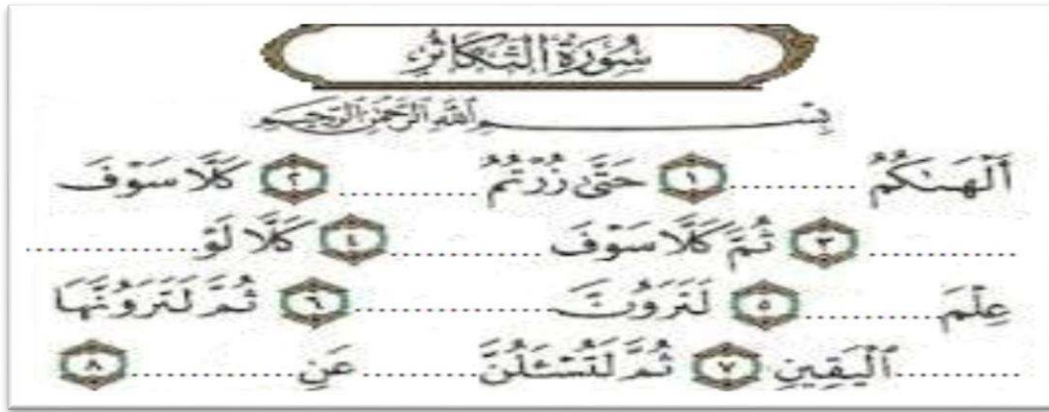 سُورَةُ التَّكَاثُرِ
بِسْمِ اللَّهِ الرَّحْمَٰنِ الرَّحِيمِ
أَلْهَىٰكُمُ ............ ١ حَتَّىٰ زُرْتُمُ .............. ٢ كَلَّا سَوْفَ
............... ٣ ثُمَّ كَلَّا سَوْفَ ............... ٤ كَلَّا لَوْ ...............
عِلْمَ ............ ٥ لَتَرَوُنَّ ................. ٦ ثُمَّ لَتَرَوُنَّهَا
............ ٱلْيَقِينِ ٧ ثُمَّ لَتُسْـَٔلُنَّ ............ عَنِ ............ ٨